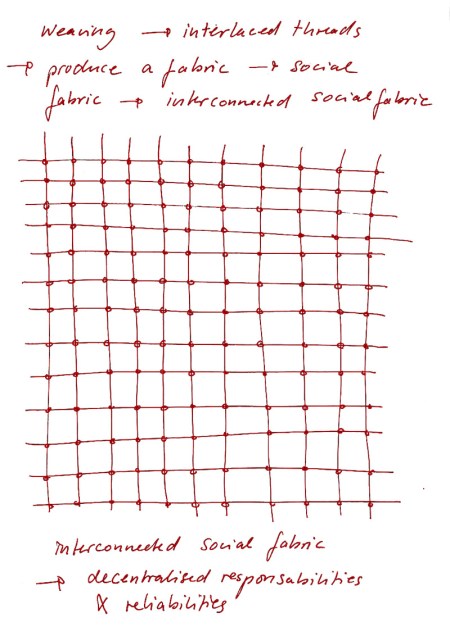 Weaving → interlaced threads
→ produce a fabric → social
fabric → interconnected social fabric
interconnected social fabric
→ decentralised responsabilities
& reliabilities